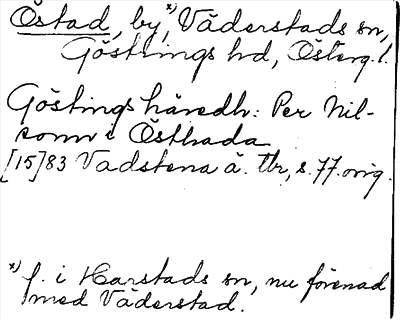 Östad, by,*) Väderstads sn,
Göstrings hd, Österg. l.
Göstings häredh: Per Nil-
sonn i Östhada
[15]83 Vadstena ä. Tbr, s. 77. orig.
*) f. i Harstads sn, nu förenad
med Väderstad.